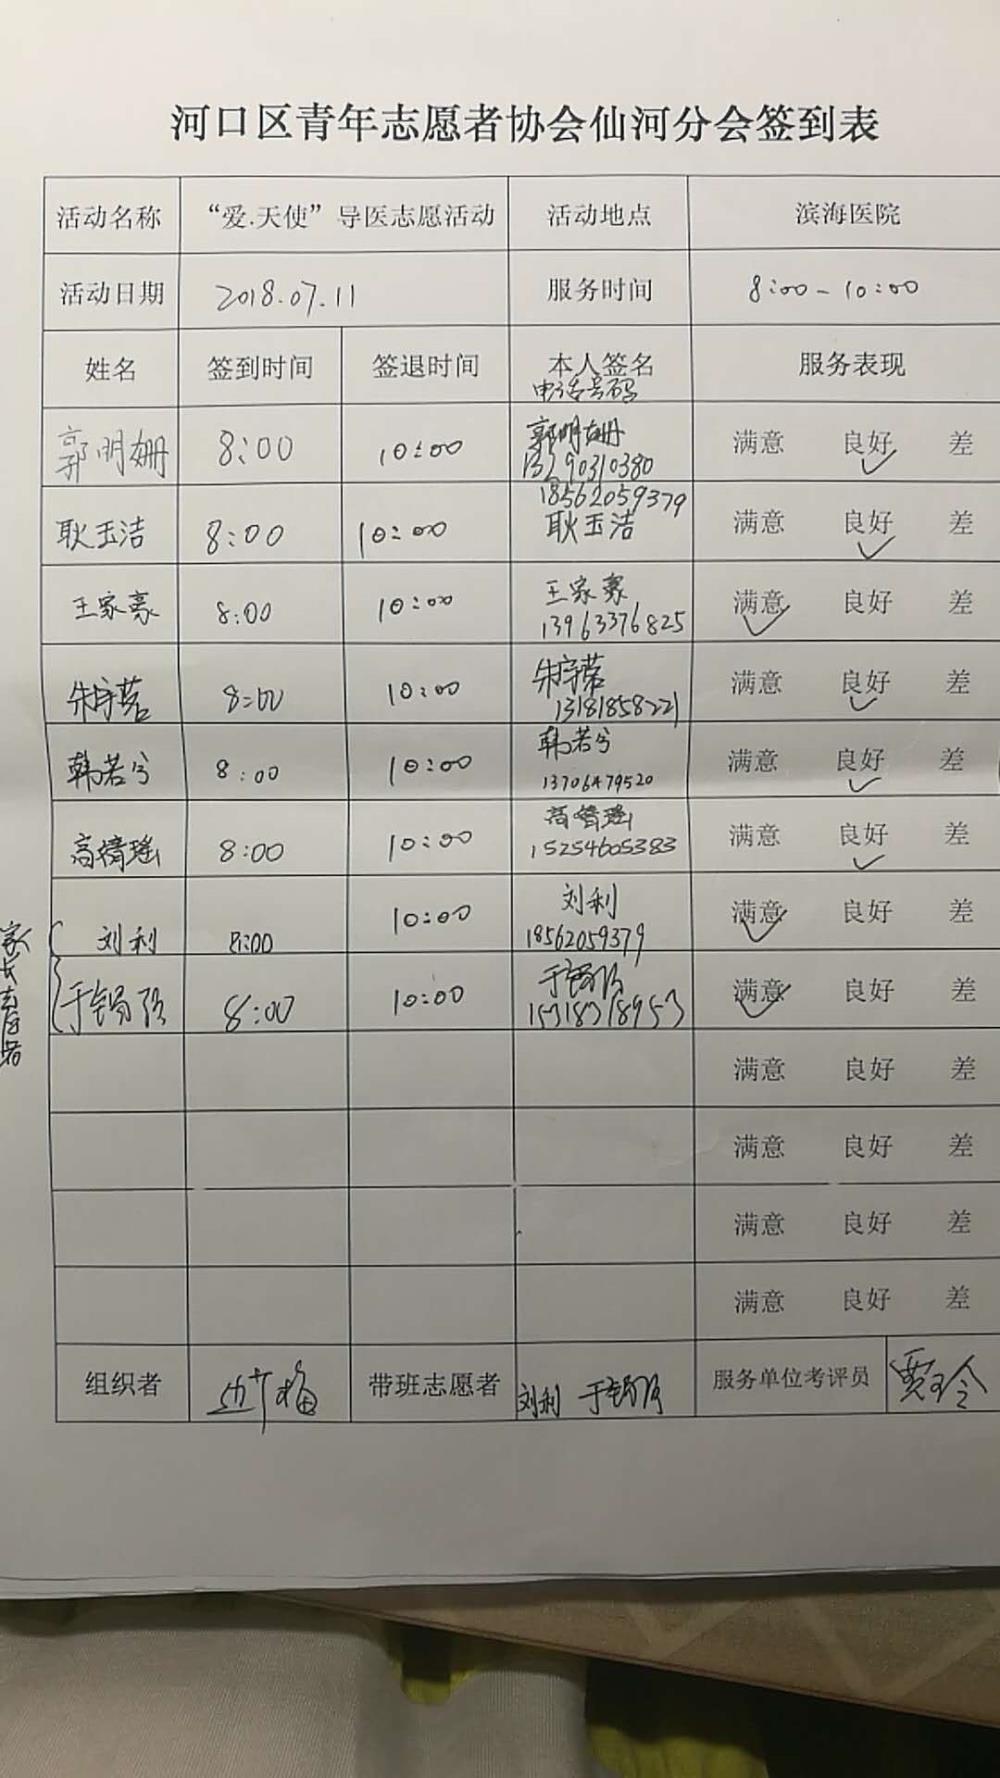 河口区青年志愿者协会仙河分会签到表
活动名称 “爱.天使”导医志愿活动 活动地点 滨海医院
活动日期 2018.07.11 服务时间 8:00-10:00
姓名 签到时间 签退时间 本人签名 服务表现
电话号码
郭明姗 8:00 10:00 郭明姗 满意 良好 差
13290310380
18562059379
耿玉洁 8:00 10:00 耿玉洁 满意 良好 差
王家豪 8:00 10:00 王家豪 满意 良好 差
13963376825
朱宇茗 8:00 10:00 朱宇茗 满意 良好 差
13181858221
韩若兮 8:00 10:00 韩若兮 满意 良好 差
13706479520
高婧瑶 8:00 10:00 高婧瑶 满意 良好 差
15254605383
刘利 8:00 10:00 刘利 满意 良好 差
18562059379
家长志愿者
8:00 10:00 满意 良好 差
15318318953
满意 良好 差
满意 良好 差
满意 良好 差
满意 良好 差
组织者 带班志愿者 刘利 服务单位考评员 贾玲